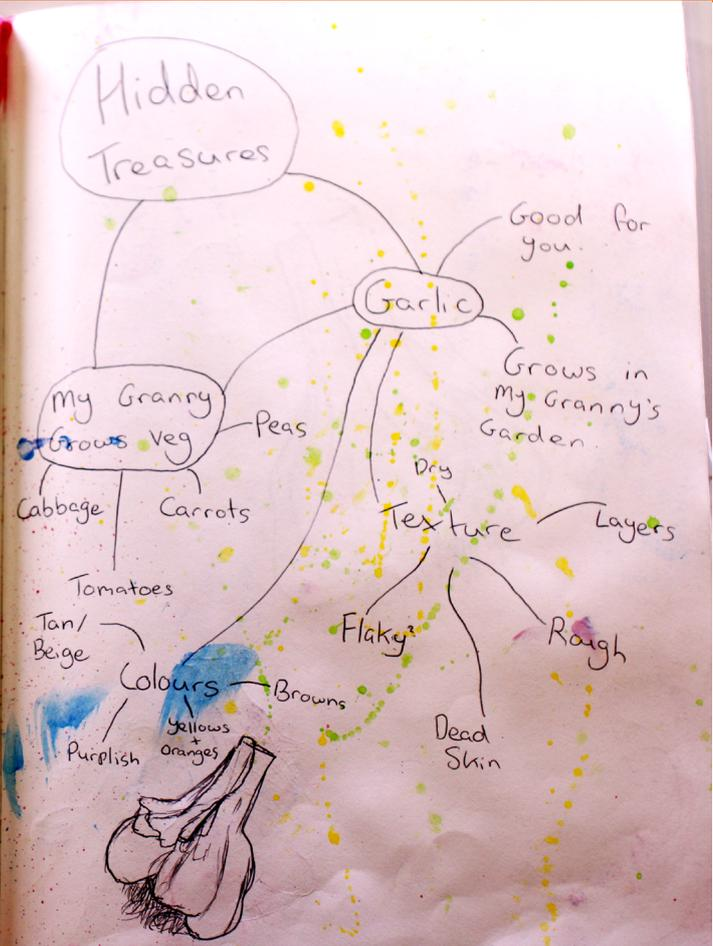 Hidden
Treasures
Good for
you.
Garlic
Grows in
My Granny's
Garden.
My Granny
Grows Veg
Peas
Cabbage
Carrots
Tomatoes
Dry
Texture
Layers
Flaky?
Rough
Dead
Skin
Tan/
Beige
Colours
Browns
Yellows
+
Oranges
Purplish